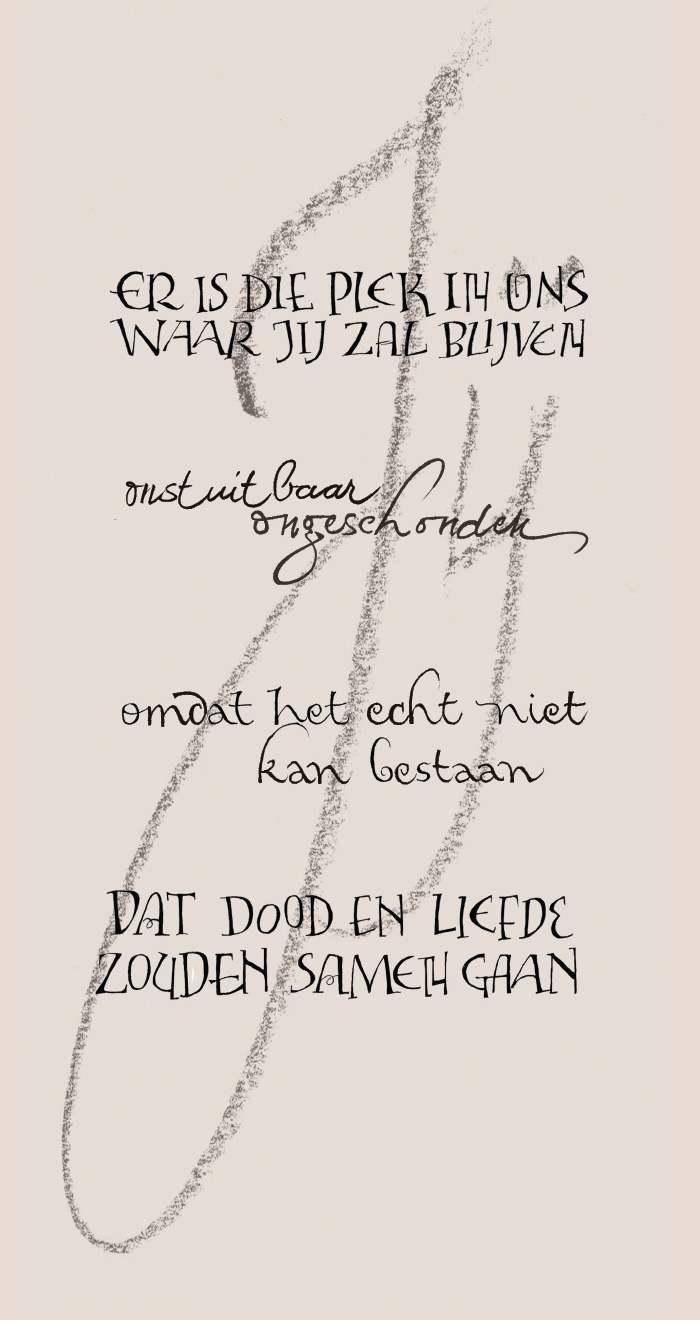 Jij
ER IS DIE PLEK IN ONS
WAAR JIJ ZAL BLIJVEN
onstuitbaar
ongeschonden
omdat het echt niet
kan bestaan
DAT DOOD EN LIEFDE
ZOUDEN SAMEN GAAN